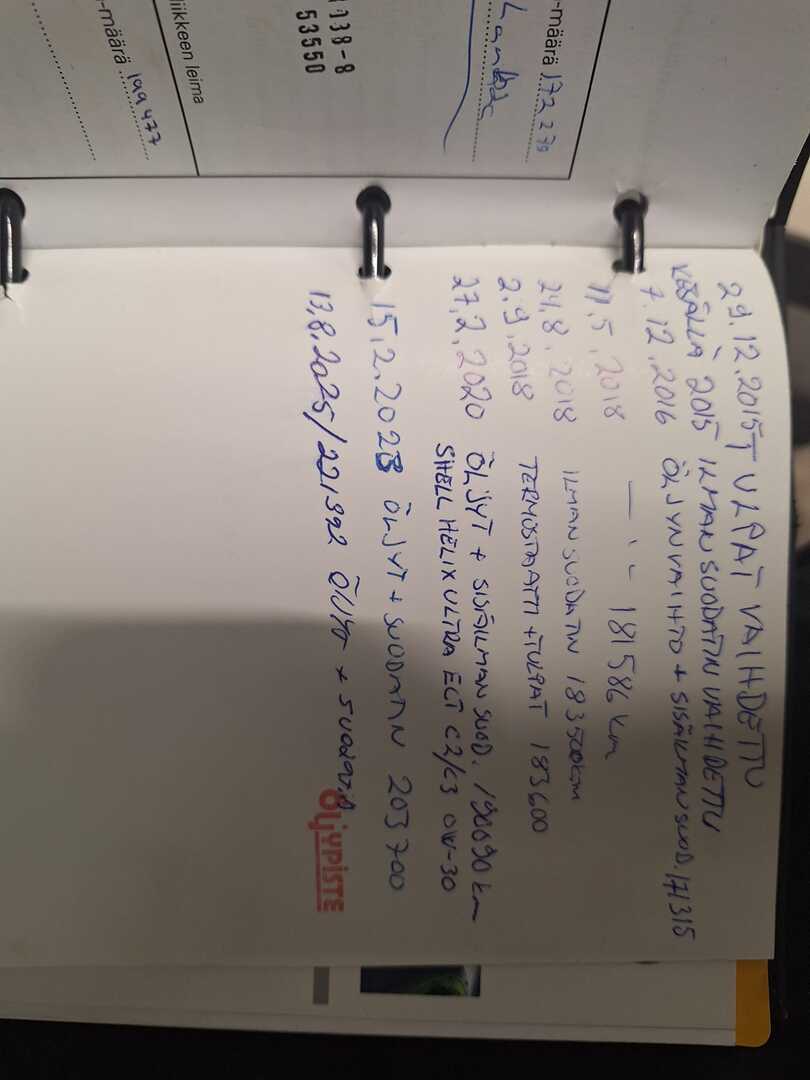 -määrä 172 279
1138-8
53550
liikkeen leima
-määrä 199 477
29.12.2015 TULPAT VAIHDETTU
KESÄLLÄ 2015 ILMANSUODATIN VAIHDETTU
7.12.2016 ÖLJYNVAIHTO + SISÄILMANSUOD. 171315
11.5.2018 — " - 181586 km
24.8.2018 ILMANSUODATIN 183500km
2.9.2018 TERMOSTAATTI + TULPAT 183600
27.2.2020 ÖLJYT + SISÄILMANSUOD. km
SHELL HELIX ULTRA ECT C2/C3 0W-30
15.2.2023 ÖLJYT + SUODATIN 203700
13.8.2025/221392 ÖLJYT + SUODATIN
ÖLJYPISTE